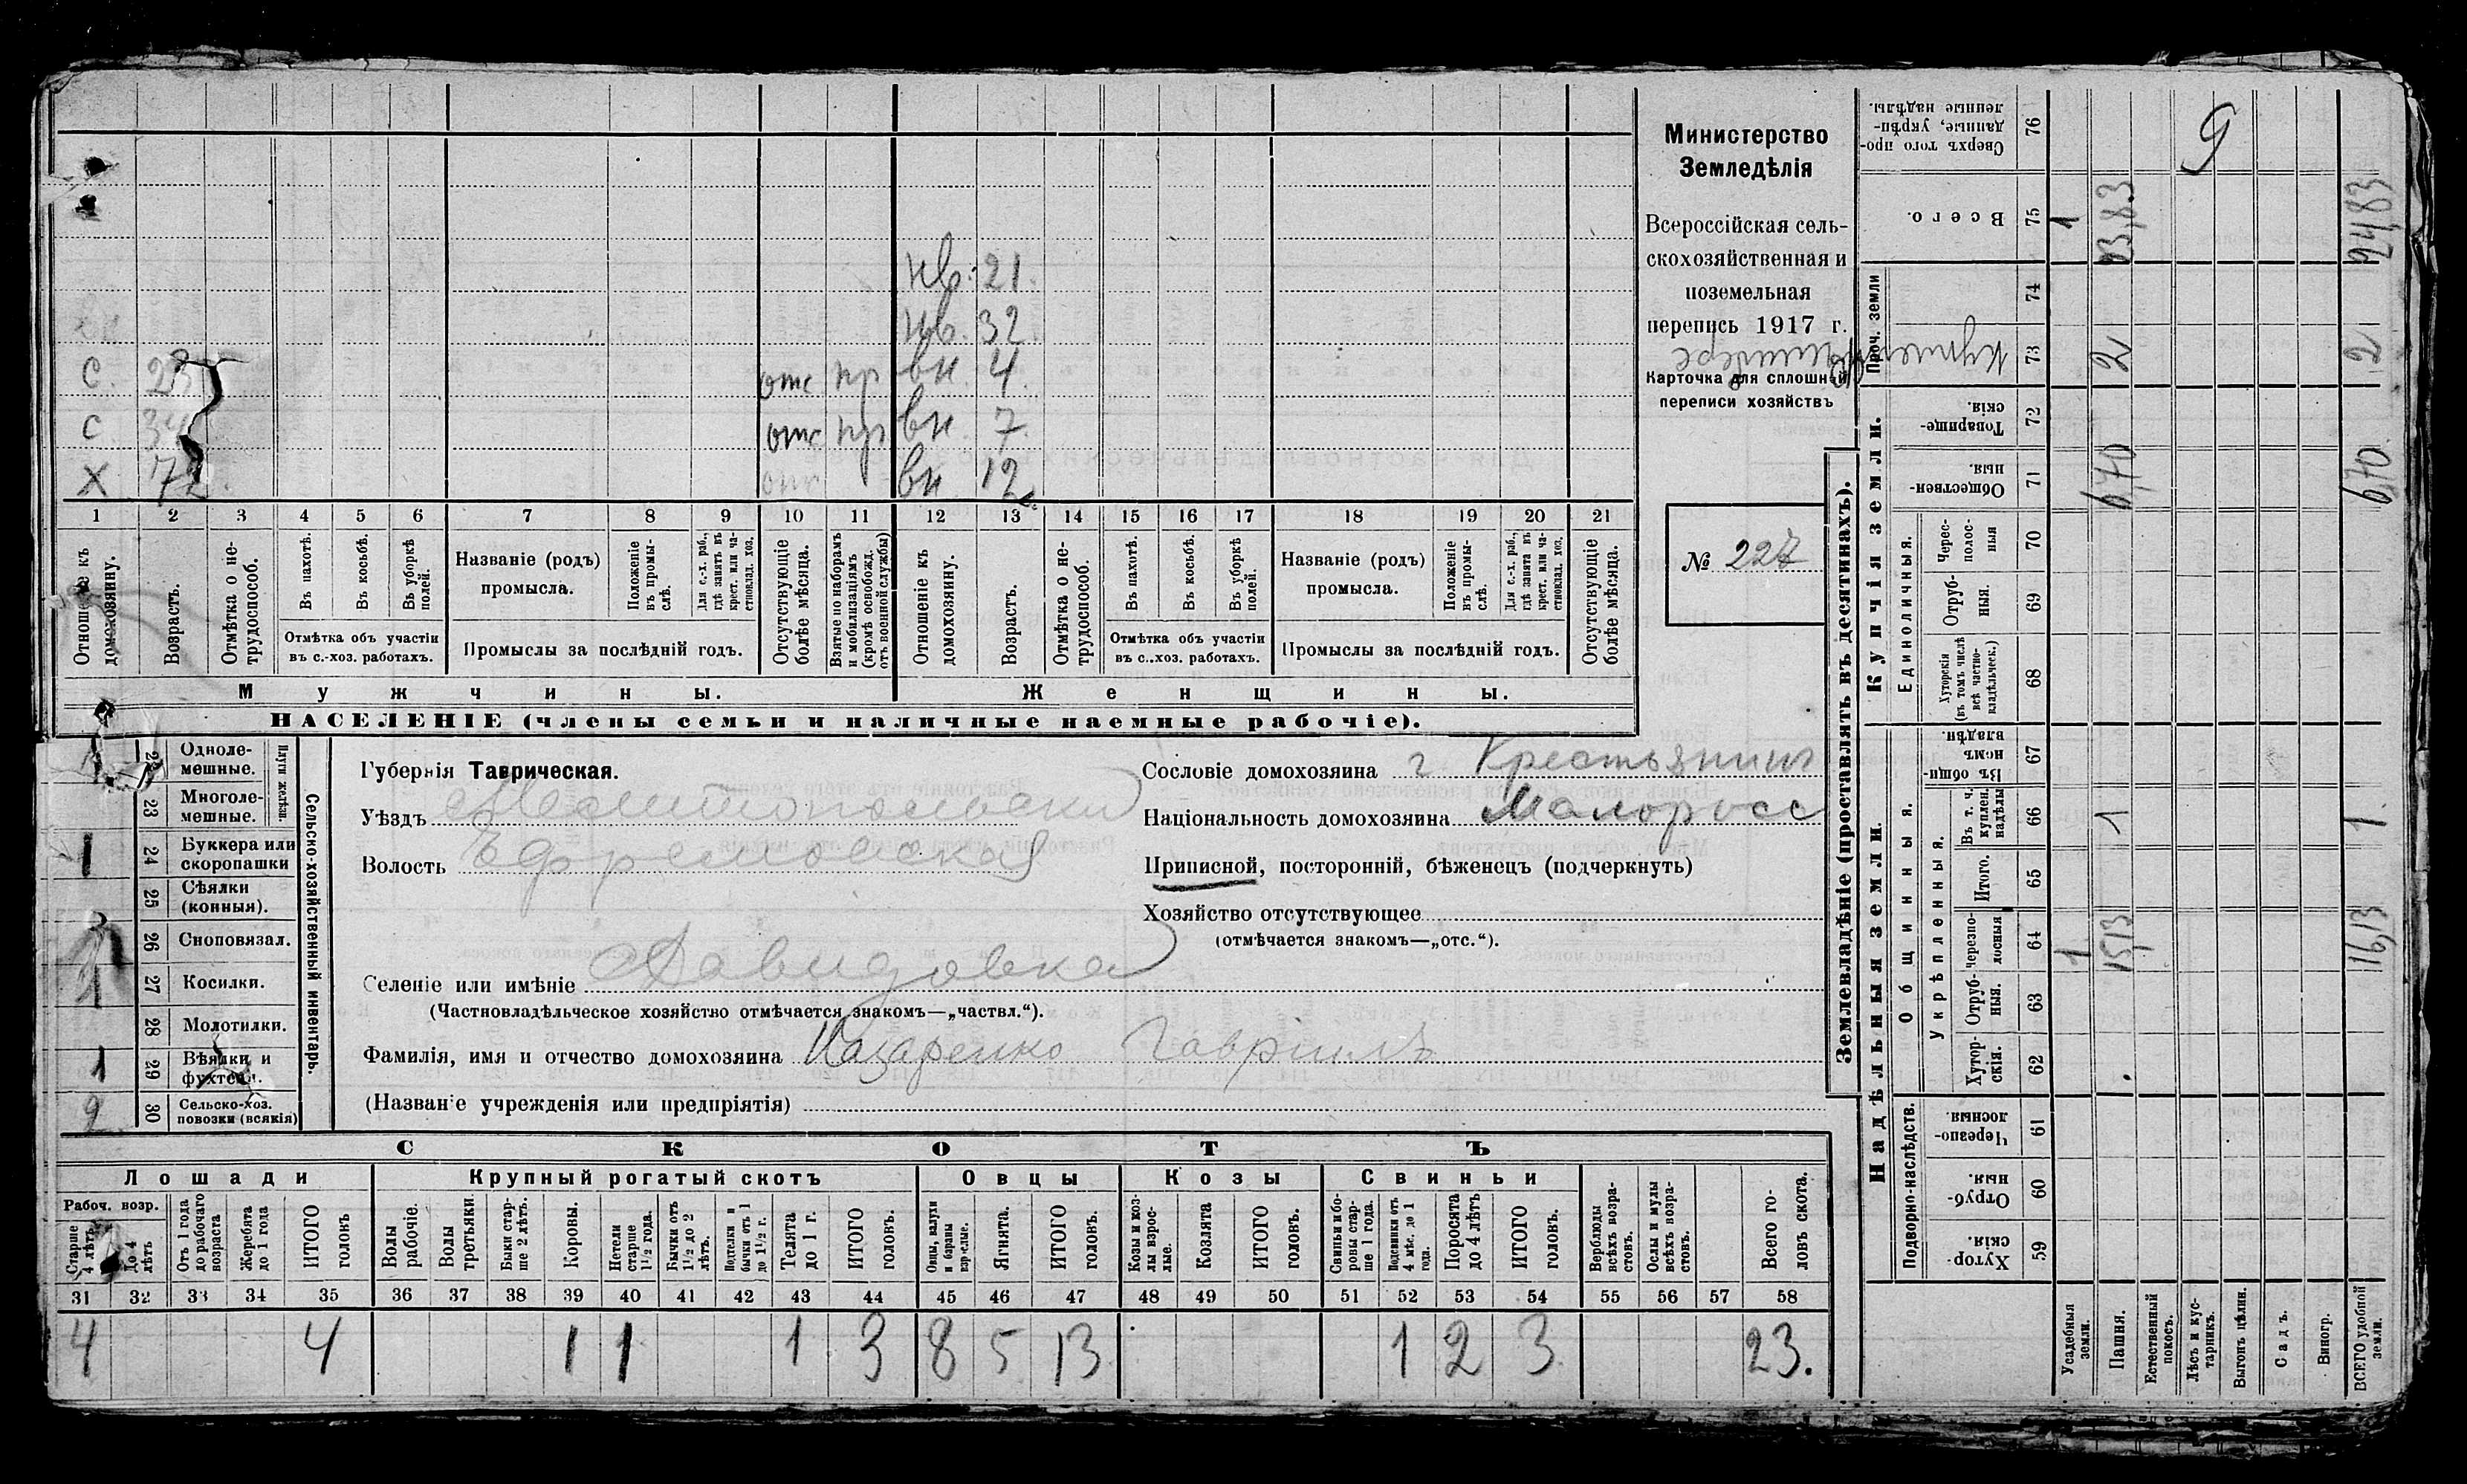 Министерство
Земледѣлія
Всероссійская сель-
скохозяйственная и
поземельная
перепись 1917 г.
Карточка для сплошной
переписи хозяйствъ
№ 227
нв. 21
нв. 32
С. отс пр вн. 4
С отс пр вн. 7
Х 72 отс вн 12
1 2 3 4 5 6 7 8 9 10 11 12 13 14 15 16 17 18 19 20 21
Отношеніе къ домохозяину.
Возрастъ.
Отмѣтка о не-
трудоспособ.
Въ пахотѣ.
Въ косьбѣ.
Въ уборкѣ
полей.
Отмѣтка объ участіи
въ с.-хоз. работахъ.
Названіе (родъ)
промысла.
Положеніе
въ промы-
слѣ.
Для с.-х. раб.,
гдѣ занятъ въ
крест. или ча-
стновлад. хоз.
Промыслы за послѣдній годъ.
Отсутствующіе
болѣе мѣсяца.
Взятые по наборамъ
и мобилизаціямъ
(кромѣ освобожд.
отъ военной службы)
Отношеніе къ
домохозяину.
Возрастъ.
Отмѣтка о не-
трудоспособ.
Въ пахотѣ.
Въ косьбѣ.
Въ уборкѣ
полей.
Отмѣтка объ участіи
въ с.-хоз. работахъ.
Названіе (родъ)
промысла.
Положеніе
въ промы-
слѣ.
Для с.-х. раб.,
гдѣ занятъ въ
крест. или ча-
стновлад. хоз.
Промыслы за послѣдній годъ.
Отсутствующіе
болѣе мѣсяца.
Мужчины. Женщины.
НАСЕЛЕНІЕ (члены семьи и наличные наемные рабочіе).
Сельско-хозяйственный инвентарь.
Плуги желѣз.
22 Одноле-
мешные.
23 Многоле-
мешные.
1 24 Буккера или
скоропашки
25 Сѣялки
(конныя).
26 Сноповязал.
1 27 Косилки.
28 Молотилки.
1 29 Вѣялки и
фухтели.
2 30 Сельско-хоз.
повозки (всякія)
Губернія Таврическая.
Уѣздъ Мелитопольскій
Волость Ефремовская
Селеніе или имѣніе Давидовка
(Частновладѣльческое хозяйство отмѣчается знакомъ—„частвл.“).
Фамилія, имя и отчество домохозяина Назаренко Гавріилъ
(Названіе учрежденія или предпріятія)
Сословіе домохозяина Крестьянинъ
Національность домохозяина Малоросс
Приписной, посторонній, бѣженецъ (подчеркнуть)
Хозяйство отсутствующее
(отмѣчается знакомъ—„отс.“).
СКОТЪ
Лошади Крупный рогатый скотъ Овцы Козы Свиньи
Рабоч. возр.
Старше
4 лѣтъ
До 4
лѣтъ
Отъ 1 года
до рабочаго
возраста
Жеребята
до 1 года
ИТОГО
головъ
Волы
рабочіе.
Волы
третьяки.
Быки стар-
ше 2 лѣтъ.
Коровы.
Нетели
старше
1½ года.
Бычки отъ
1½ до 2
лѣтъ.
Подтелки и
бычки отъ 1
до 1½ г.
Телята
до 1 г.
ИТОГО
головъ.
Овцы, валухи
и бараны
взрослые.
Ягнята.
ИТОГО
головъ.
Козы и коз-
лы взрос-
лые.
Козлята
ИТОГО
головъ.
Свиньи и бо-
ровы стар-
ше 1 года.
Подсвинки отъ
4 мѣс. до 1
года.
Поросята
до 4 лѣтъ
ИТОГО
головъ.
Верблюды
всѣхъ возра-
стовъ.
Ослы и мулы
всѣхъ возра-
стовъ.
Всего го-
ловъ скота.
31 32 33 34 35 36 37 38 39 40 41 42 43 44 45 46 47 48 49 50 51 52 53 54 55 56 57 58
4 4 1 1 1 3 8 5 13 1 2 3 23.
Землевладѣніе (проставлять въ десятинахъ).
Купчія земли.
Надѣльныя земли.
Сверхъ того про-
данные, укрѣп-
ленные надѣлы. 76
Всего. 75 1 24,83
Проч. земли 74
73 2 2
Товарище-
скія. 72
Обществен-
ныя. 71 6,70 6,70
Единоличныя.
Черес-
полос-
ныя 70
Отруб-
ныя. 69
Хуторскія
(въ томъ числѣ
всѣ частно-
владѣльческ.) 68
Общинныя.
Въ общи
номъ
владѣн. 67
Укрѣпленныя.
Въ т. ч.
куплен.
надѣлы 66 1 1.
Итого. 65
Черезпо-
лосныя 64 1 15,13 16,13
Отруб-
ныя. 63
Хутор-
скія. 62
Подворно-наслѣдств.
Черезпо-
лосныя 61
Отруб-
ныя. 60
Хутор-
скія. 59
Усадебныя
земли.
Пашня.
Естественный
покосъ.
Лѣсъ и кус-
тарникъ.
Выгонъ цѣлин.
Садъ.
Виногр.
ВСЕГО удобной
земли.
9